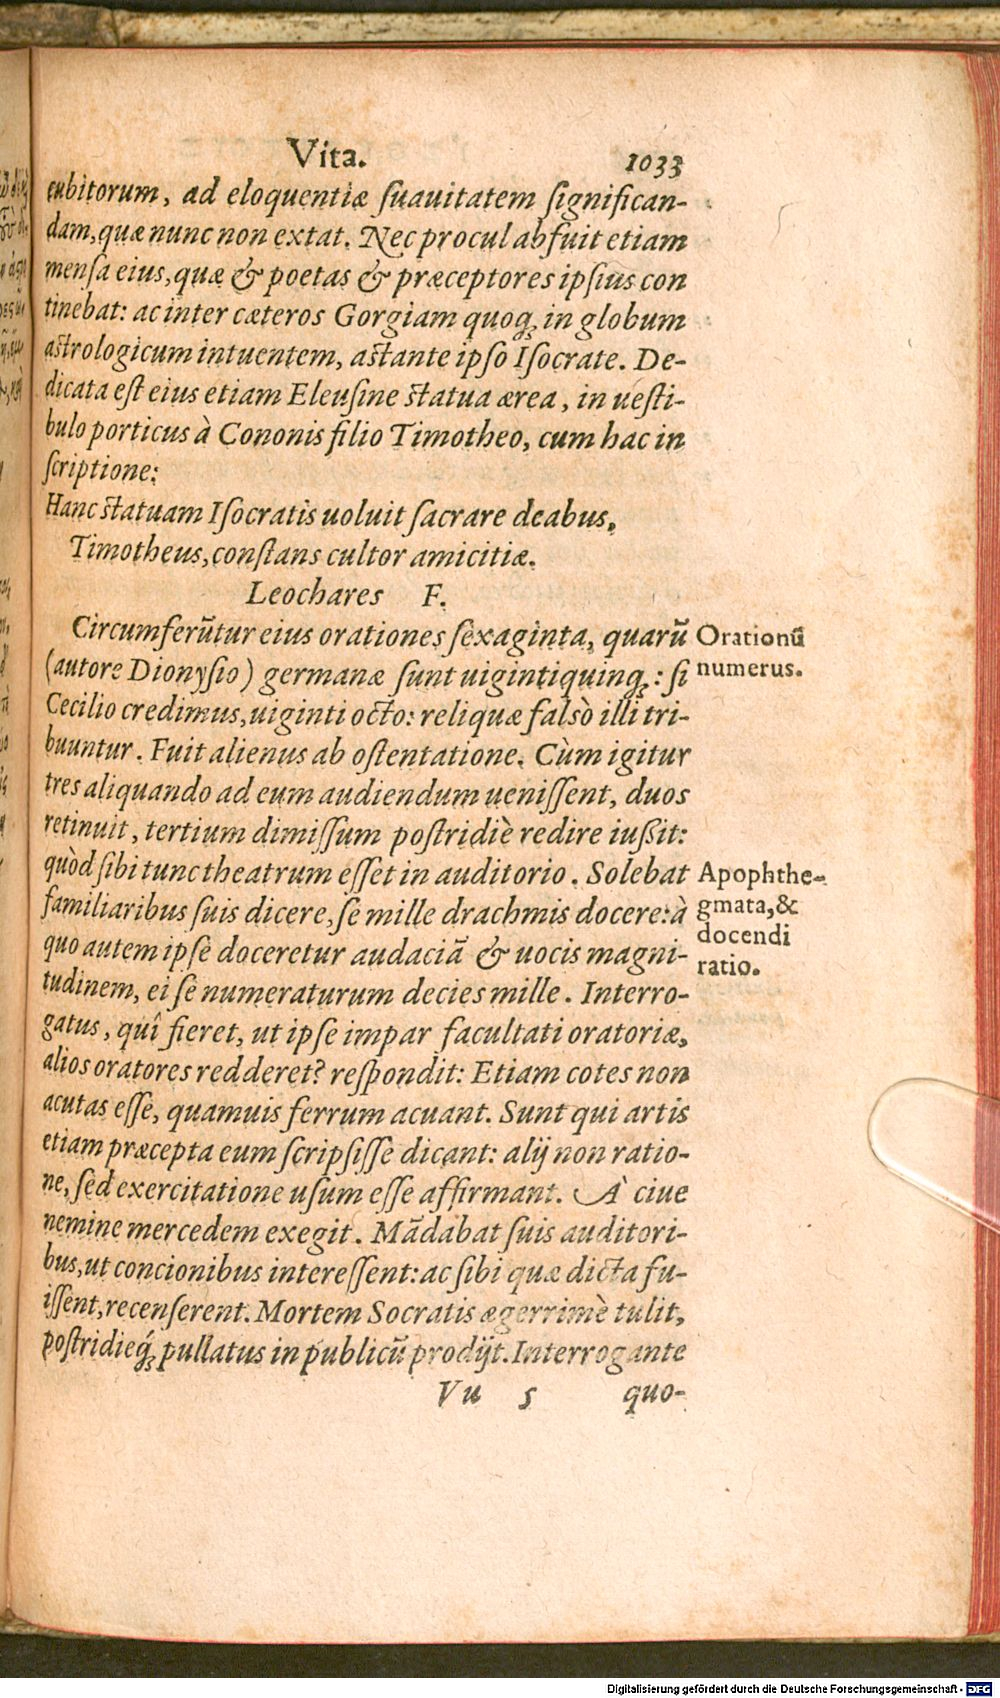 Vita. 1033
cubitorum, ad eloquentiæ ſuauitatem ſignifican-
dam, quæ nunc non extat. Nec procul abfuit etiam
menſa eius, quæ & poetas & præceptores ipſius con
tinebat: ac inter cæteros Gorgiam quoq; in globum
aſtrologicum intuentem, aſtante ipſo Iſocrate. De-
dicata eſt eius etiam Eleuſine ſtatua ærea, in ueſti-
bulo porticus à Cononis filio Timotheo, cum hac in
ſcriptione:
Hanc ſtatuam Iſocratis uoluit ſacrare deabus,
Timotheus, conſtans cultor amicitiæ.
Leochares F.
Circumferũtur eius orationes ſexaginta, quarũ
(autore Dionyſio) germanæ ſunt uigintiquinq;: ſi
Cecilio credimus, uiginti octo: reliquæ falsò illi tri-
buuntur. Fuit alienus ab oſtentatione. Cùm igitur
tres aliquando ad eum audiendum ueniſſent, duos
retinuit, tertium dimiſſum poſtridiè redire iußit:
quòd ſibi tunc theatrum eſſet in auditorio. Solebat
familiaribus ſuis dicere, ſe mille drachmis docere: à
quo autem ipſe doceretur audaciã & uocis magni-
tudinem, ei ſe numeraturum decies mille. Interro-
gatus, quî fieret, ut ipſe impar facultati oratoriæ,
alios oratores redderet? reſpondit: Etiam cotes non
acutas eſſe, quamuis ferrum acuant. Sunt qui artis
etiam præcepta eum ſcripſiſſe dicant: alij non ratio-
ne, ſed exercitatione uſum eſſe affirmant. A ciue
nemine mercedem exegit. Mãdabat ſuis auditori-
bus, ut concionibus intereſſent: ac ſibi quæ dicta fu-
iſſent, recenſerent. Mortem Socratis ægerrimè tulit,
poſtridieq́; pullatus in publicũ prodijt. Interrogante
Vu 5 quo-
Orationũ
numerus.
Apophthe-
gmata, &
docendi
ratio.
Digitalisierung gefördert durch die Deutsche Forschungsgemeinschaft - DFG